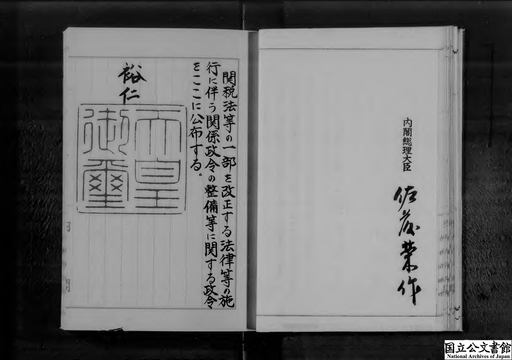 関税法等の一部を改正する法律等の施
行に伴う関係政令の整備等に関する政令
をここに公布する。
裕仁
天皇
御璽
内閣総理大臣
佐藤榮作
国立公文書館
National Archives of Japan